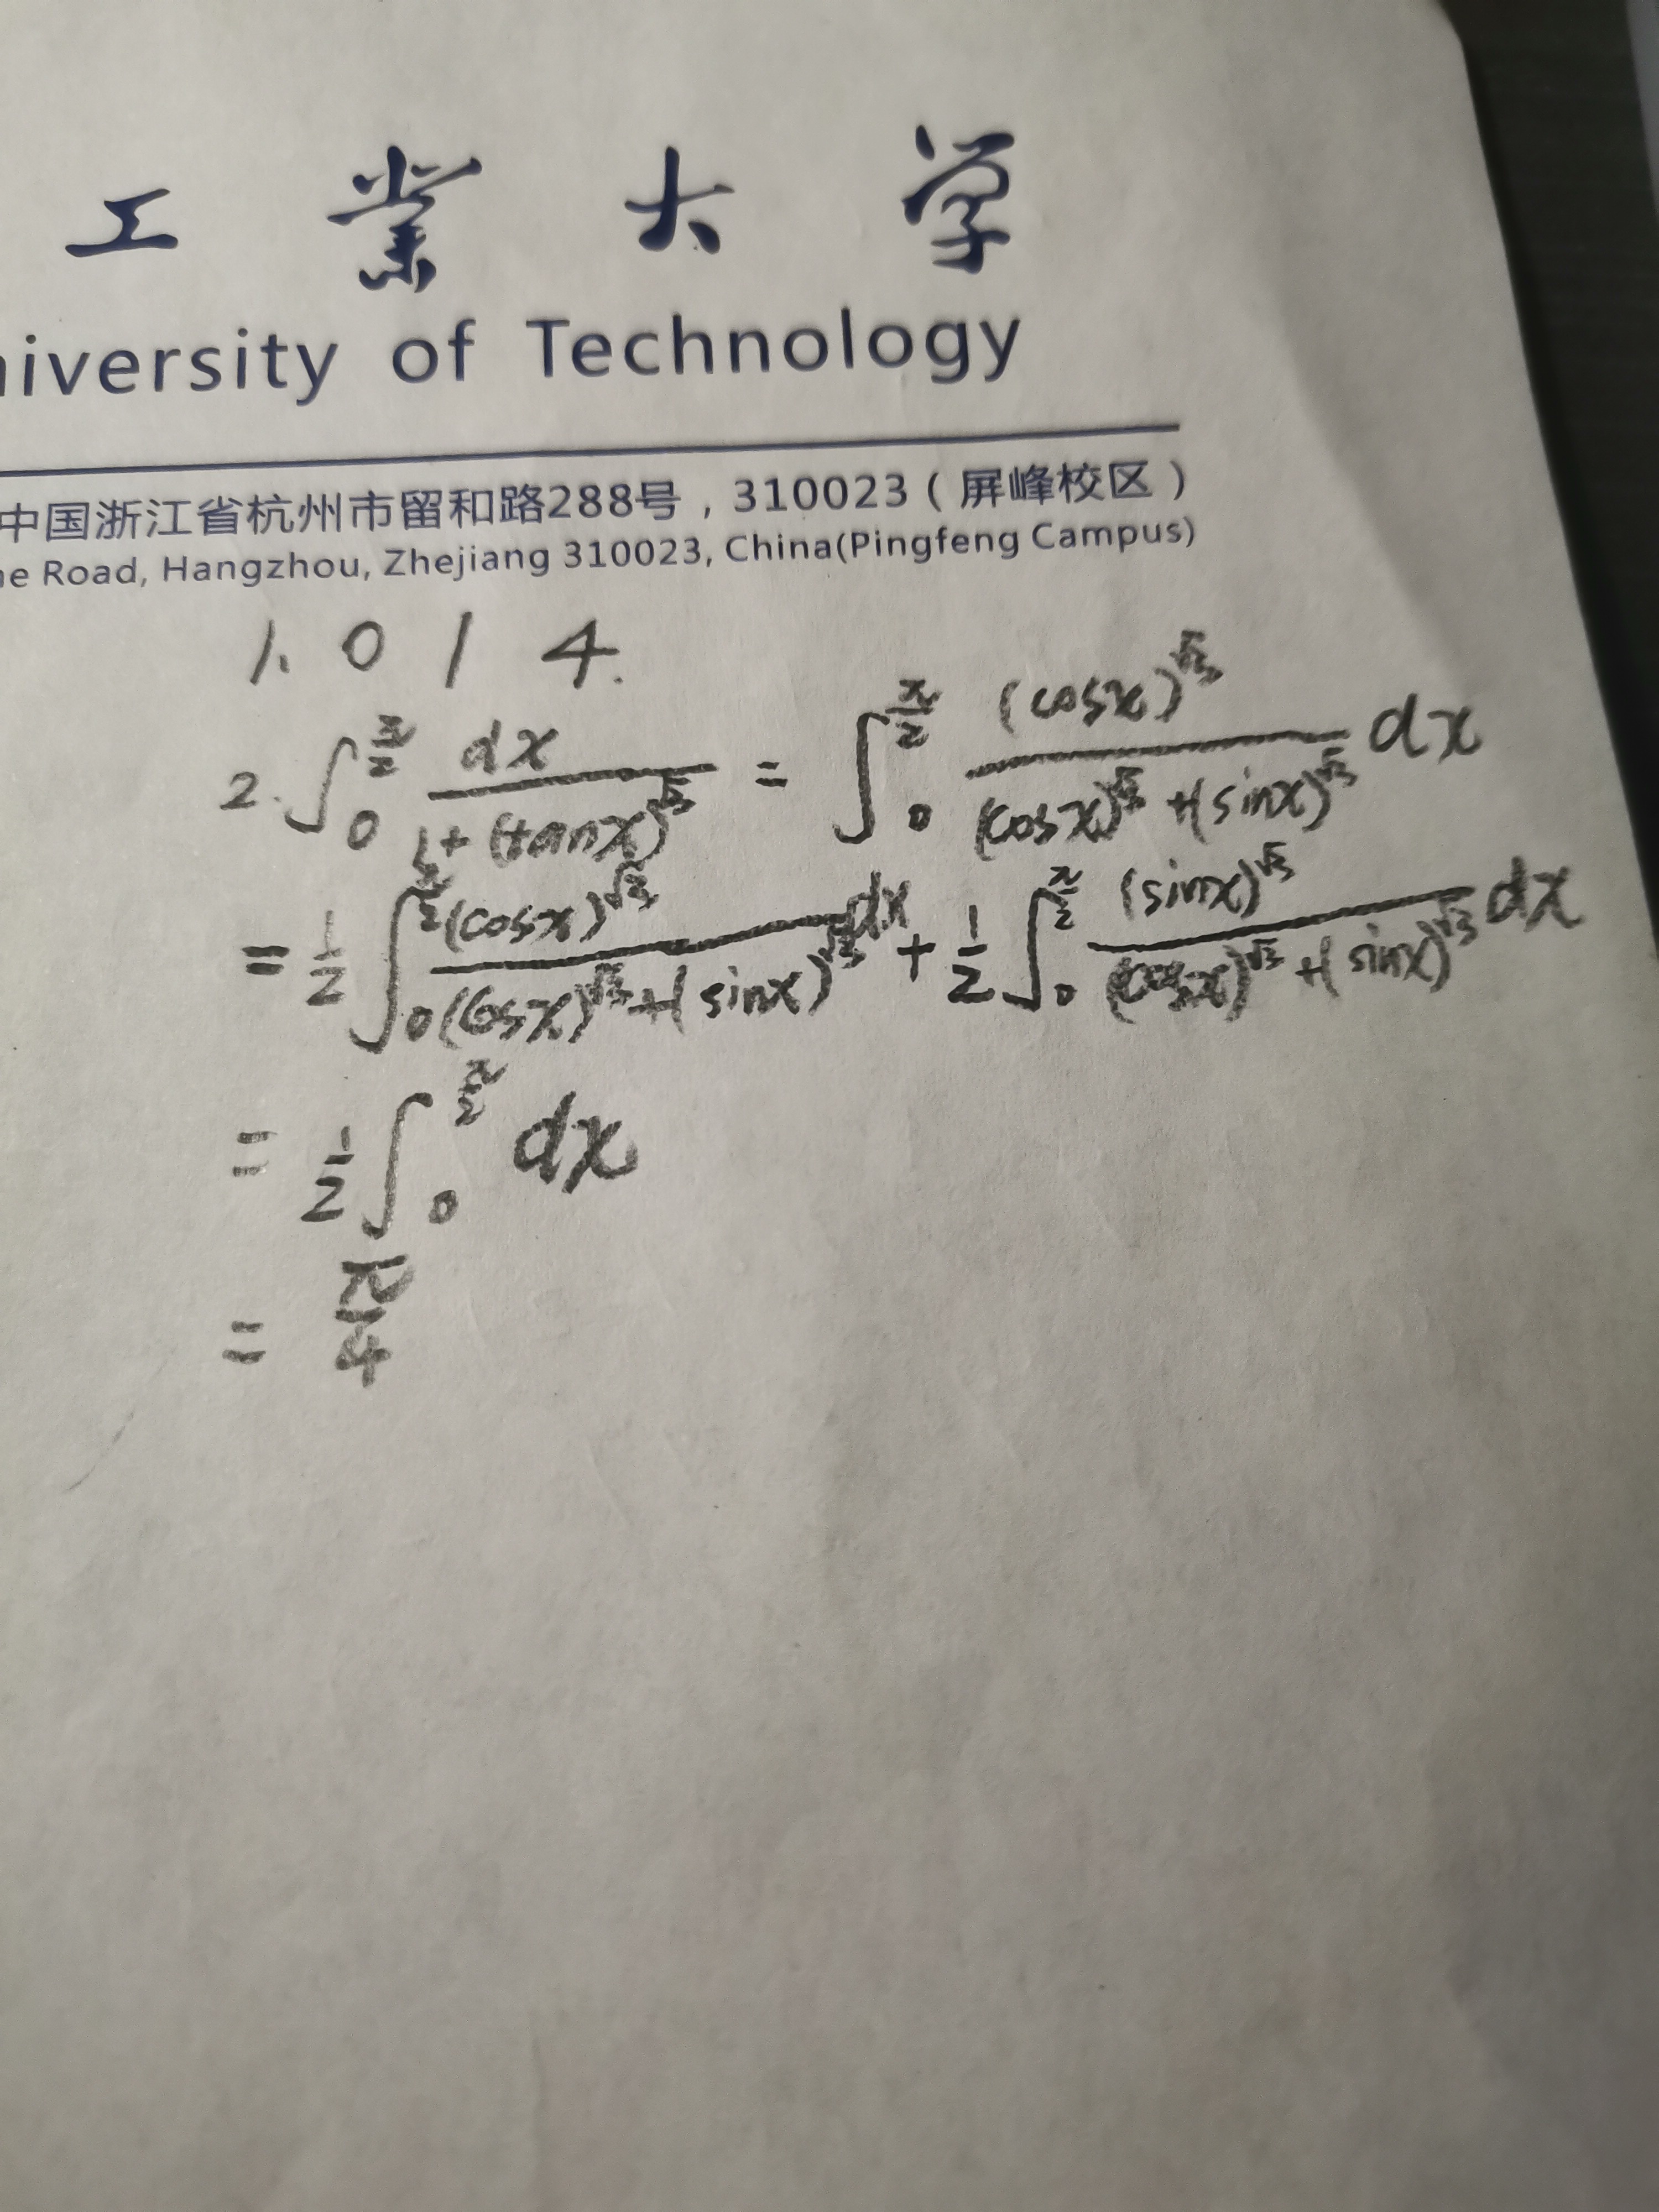 工業大学
niversity of Technology
中国浙江省杭州市留和路288号，310023（屏峰校区）
e Road, Hangzhou, Zhejiang 310023, China(Pingfeng Campus)
1. 0 1 4.
2. ∫_0^{π/2} dx / (1+(tanx)^{√3}) = ∫_0^{π/2} (cosx)^{√3} / ((cosx)^{√3}+(sinx)^{√3}) dx
= 1/2 ∫_0^{π/2} (cosx)^{√3} / ((cosx)^{√3}+(sinx)^{√3}) dx + 1/2 ∫_0^{π/2} (sinx)^{√3} / ((cosx)^{√3}+(sinx)^{√3}) dx
= 1/2 ∫_0^{π/2} dx
= π/4